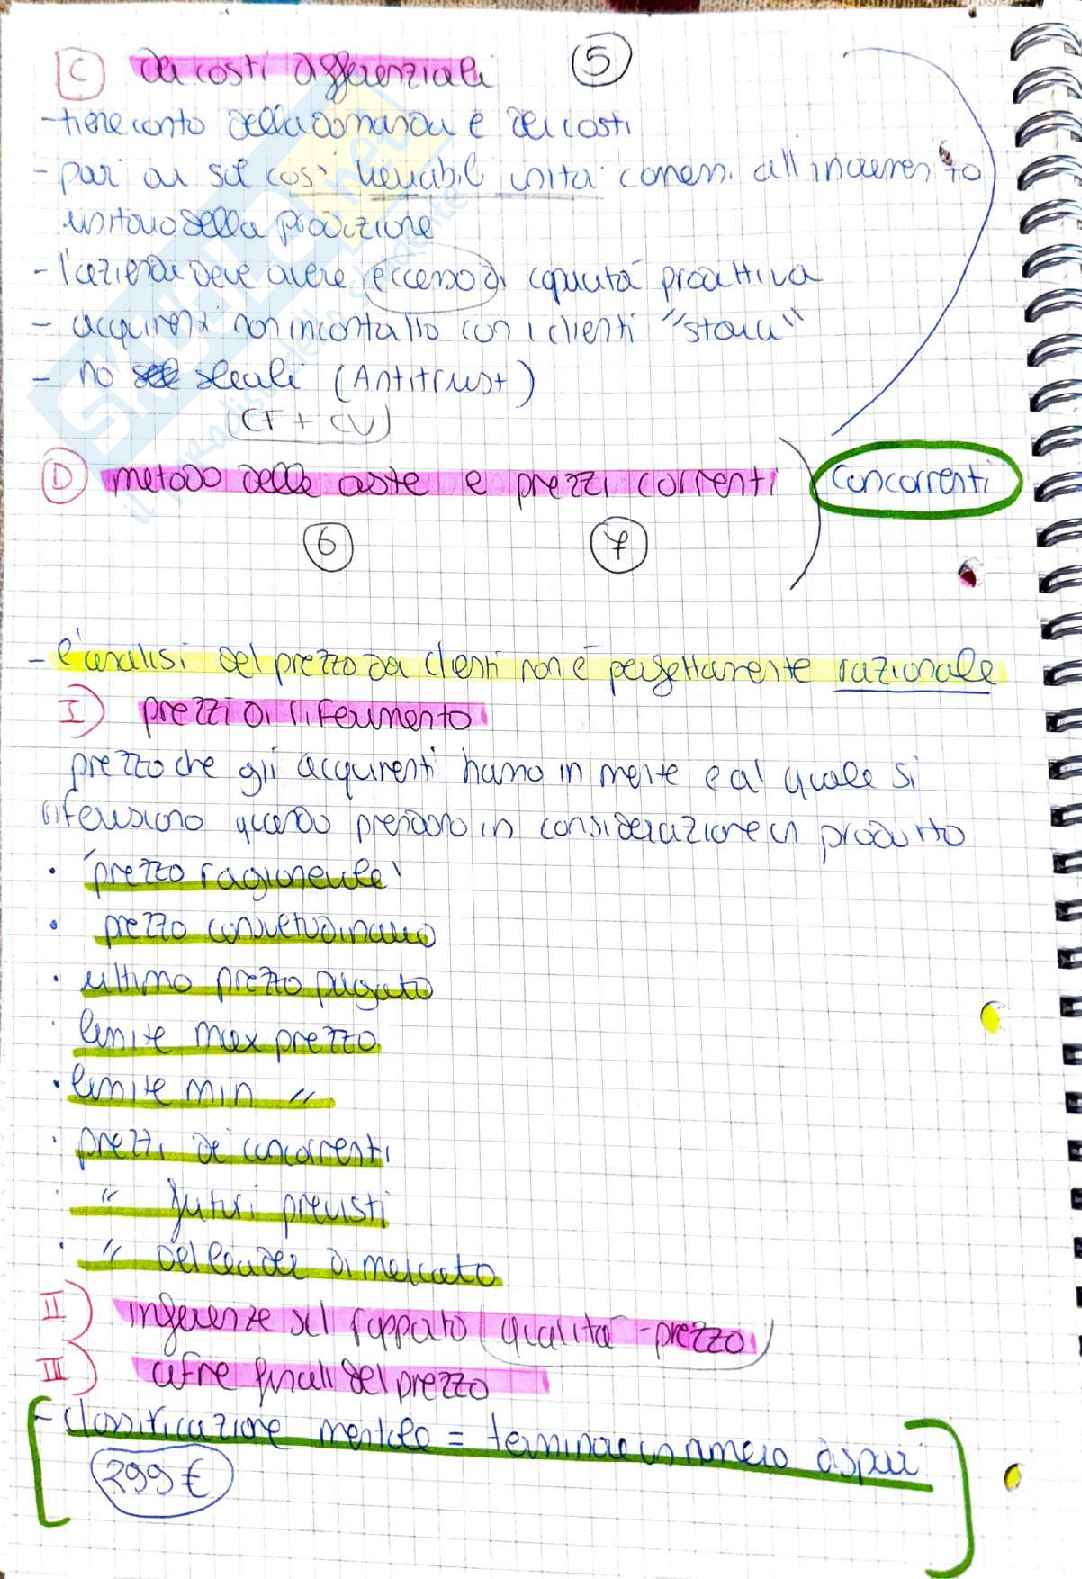 C dei costi differenziali 5
- tiene conto della domanda e dei costi
- pari ai soli costi variabili unitari connessi all'incremento
unitario della produzione
- l'azienda deve avere eccesso di capacità produttiva
- acquirenti non in contatto con i clienti "storici"
- no sleali (Antitrust)
(CF + CV)
D metodo delle aste e prezzi correnti concorrenti
6 7
- l'analisi del prezzo da clienti non è perfettamente razionale
I) prezzi di riferimento
prezzo che gli acquirenti hanno in mente e al quale si
riferiscono quando prendono in considerazione un prodotto
· 'prezzo ragionevole'
· prezzo consuetudinario
· ultimo prezzo pagato
· limite max prezzo
· limite min "
· prezzi dei concorrenti
· " futuri previsti
· " del leader di mercato
II) inferenze sul rapporto (qualità - prezzo)
III) cifre finali del prezzo
- classificazione mentale = terminare in numero dispari
299 €